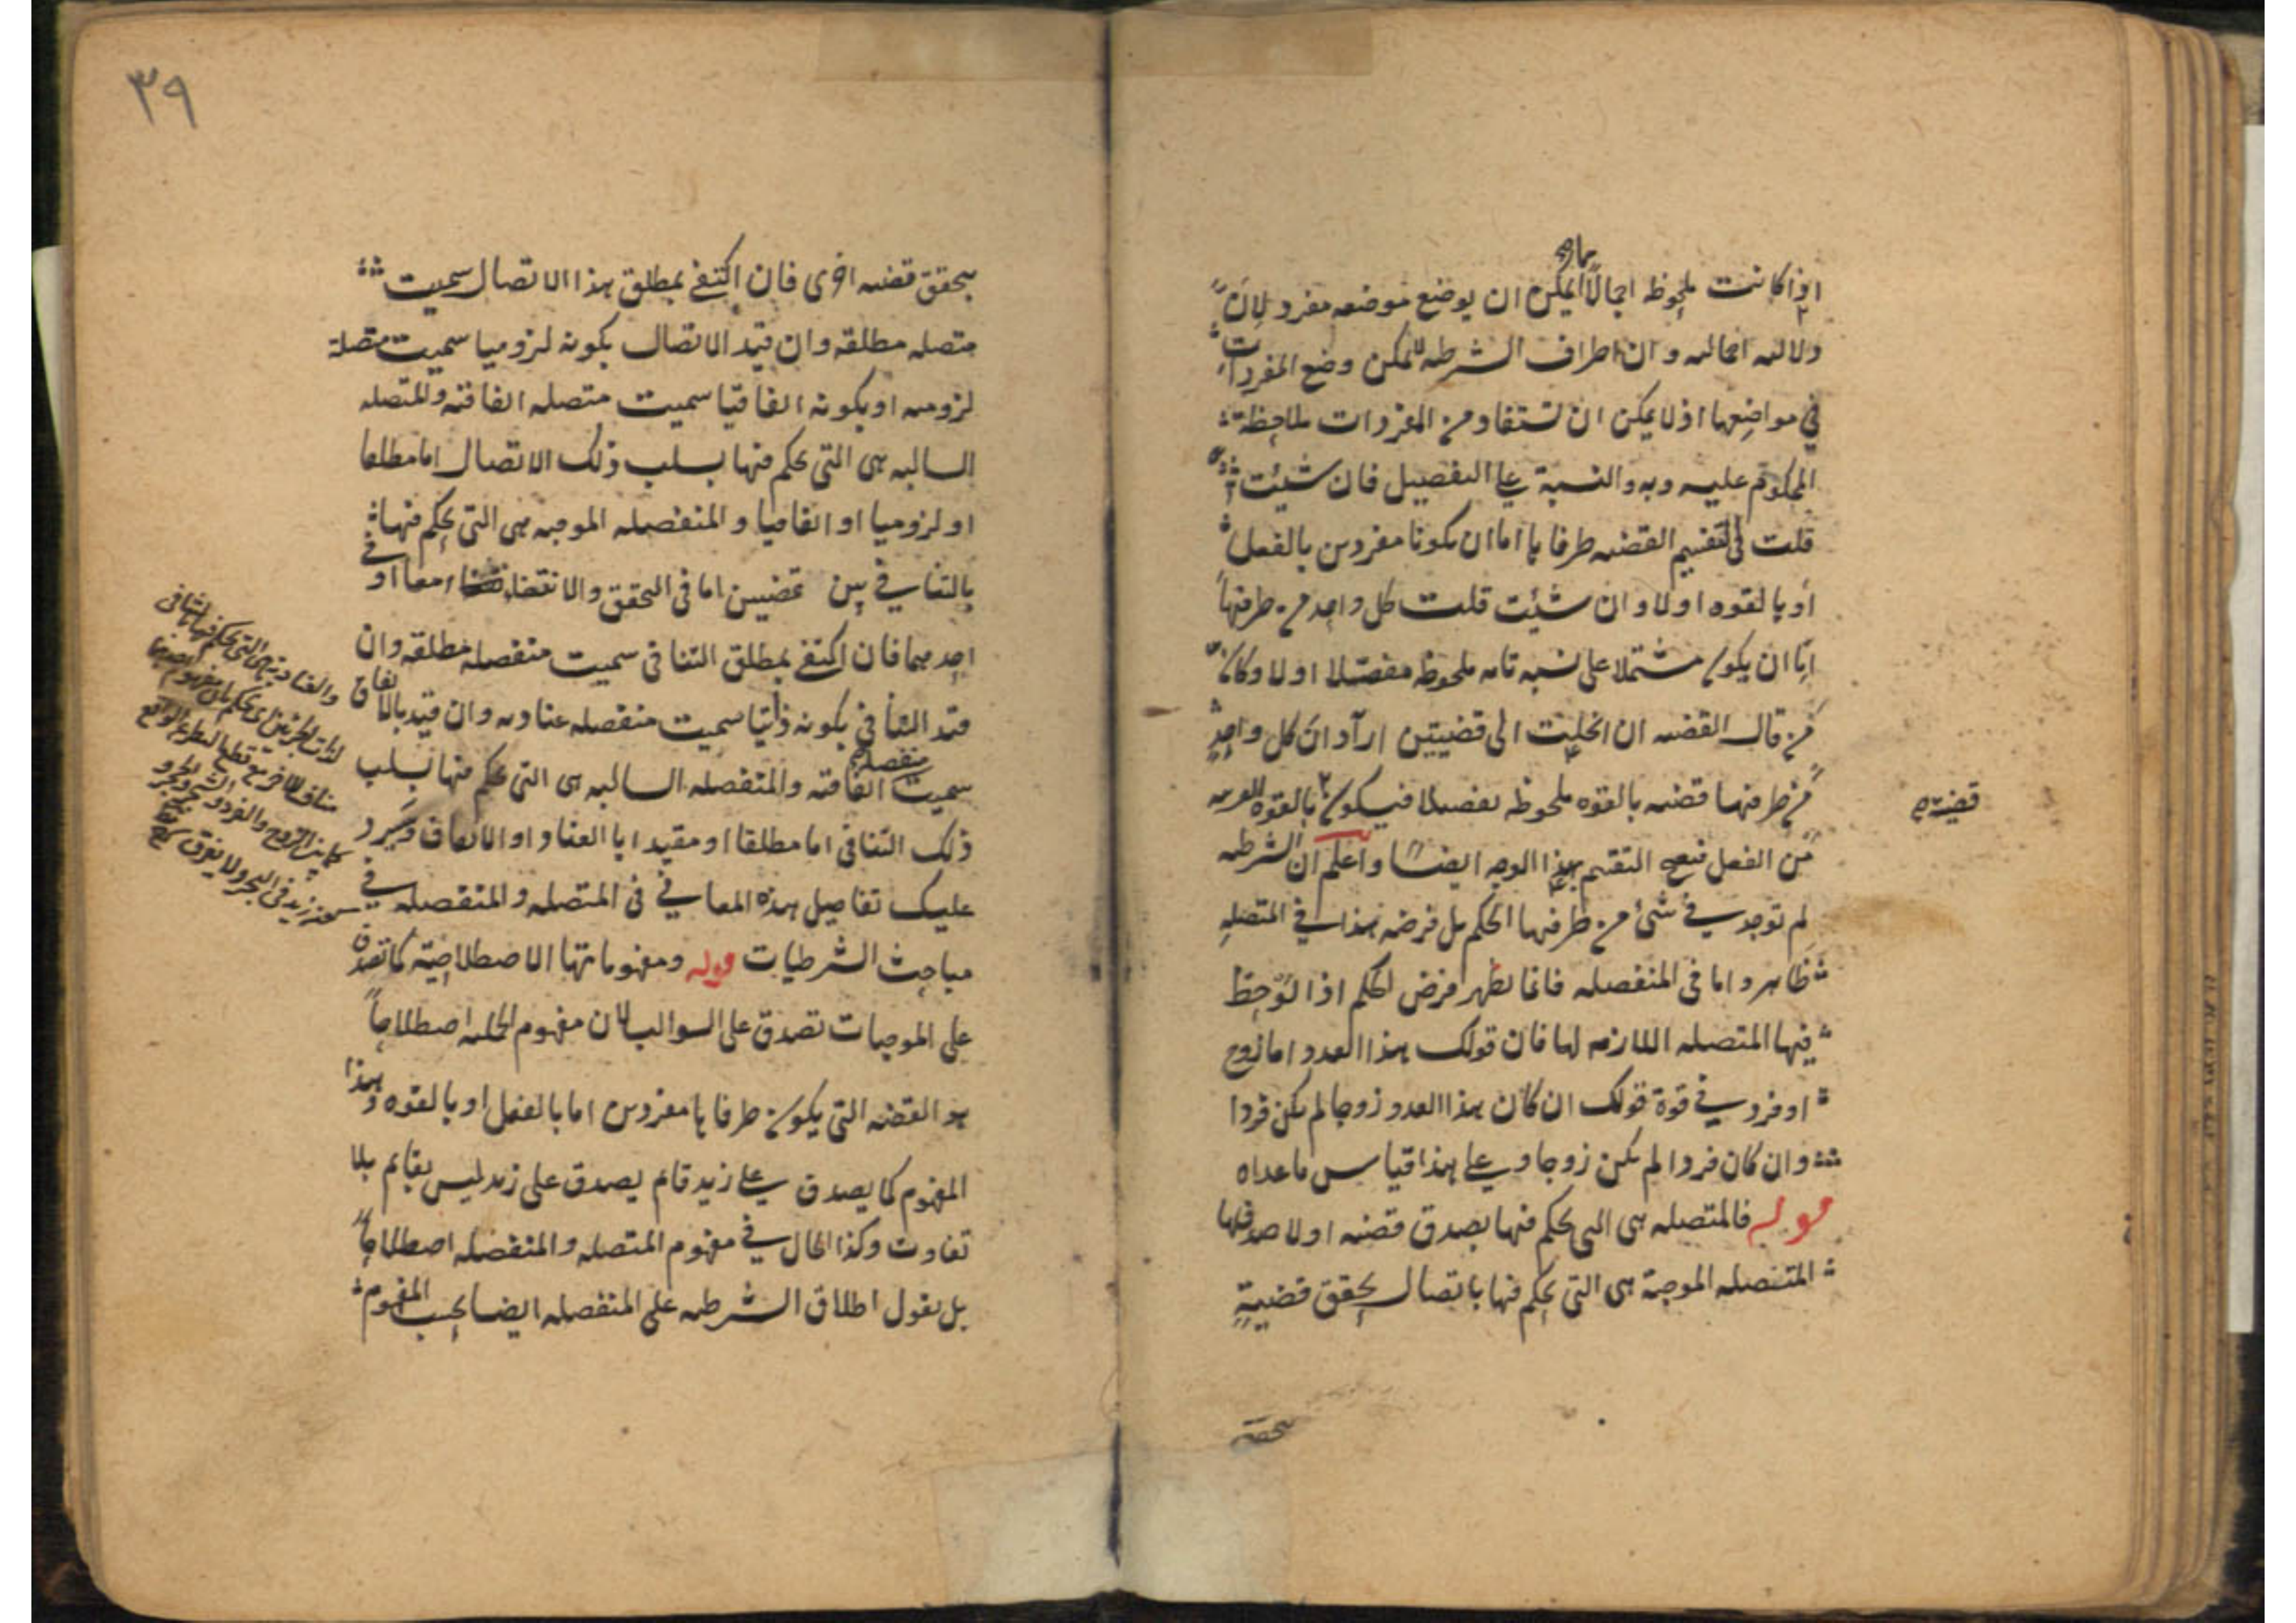 اذا كانت ملحوظه اجمالاً يمكن ان يوضع موضعه مفرد لان
دلالته اجماليه وان اطراف الشرطيه لا يمكن وضع المفردات
في مواضعها اذ لا يمكن ان تستفاد من المفردات ملاحظة
المحكوم عليه وبه والنسبة على التفصيل فان شئت
قلت في تقسيم القضيه طرفاها اما ان يكونا مفردين بالفعل
او بالقوه او لا وان شئت قلت كل واحد من طرفيها
اما ان يكون مشتملا على نسبه تامه ملحوظه مفصلا او لا وكان
من قال القضيه ان انحلت الى قضيتين اراد ان كل واحد
من طرفيها قضيه بالقوه ملحوظه تفصيلا فيكون بالقوه القريبه
قضية صح
من الفعل فيصح التقسيم بهذا الوجه ايضا واعلم ان الشرطيه
لم توجد في شئ من طرفيها الحكم بل فرضه هذا في المتصله
ظاهر واما في المنفصله فانما يظهر فرض الحكم اذا لوحظ
فيها المتصله اللازمه لها فان قولك هذا العدد اما زوج
او فرد في قوة قولك ان كان هذا العدد زوجا لم يكن فردا
وان كان فردا لم يكن زوجا وعلى هذا قياس ما عداه
قوله فالمتصله هى التى يحكم فيها بصدق قضيه او لا صدقها
المتصله الموجبة هى التى يحكم فيها باتصال تحقق قضية
بتحقق
٣٩
بتحقق قضيه اخرى فان اكتفى بمطلق هذا الاتصال سميت
متصله مطلقه وان قيد الاتصال بكونه لزوميا سميت متصلة
لزوميه او بكونه اتفاقيا سميت متصله اتفاقيه والمتصله
السالبه هى التى يحكم فيها بسلب ذلك الاتصال اما مطلقا
او لزوميا او اتفاقيا والمنفصله الموجبه هى التى يحكم فيها
بالتنافي بين قضيتين اما فى التحقق والانتفاء معا او في
احدهما فان اكتفى بمطلق التنافى سميت منفصله مطلقه وان
قيد التنافي بكونه ذاتيا سميت منفصله عناديه وان قيد بالاتفاق
سميت منفصله اتفاقيه والمنفصله السالبه هى التى يحكم فيها بسلب
ذلك التنافى اما مطلقا او مقيدا بالعناد او الاتفاق وسيرد
عليك تفاصيل هذه المعاني فى المتصله والمنفصله في
مباحث الشرطيات قوله ومفهوماتها الاصطلاحية كما تصدق
على الموجبات تصدق على السوالب لان مفهوم الحمليه اصطلاحاً
هو القضيه التى يكون طرفاها مفردين اما بالفعل او بالقوه وهذا
المفهوم كما يصدق على زيد قائم يصدق على زيد ليس بقائم بلا
تفاوت وكذا الحال في مفهوم المتصله والمنفصله اصطلاحاً
بل نقول اطلاق الشرطيه على المنفصله ايضا بحسب المفهوم
والعنادية هى التى يحكم فيها بالتنافى
لذات الجزئين اى يحكم بان مفهوم احدهما
مناف للاخر مع قطع النظر عن الواقع
كما بين الزوج والفرد والشجر والحجر و
زيد فى البحر ولا يغرق